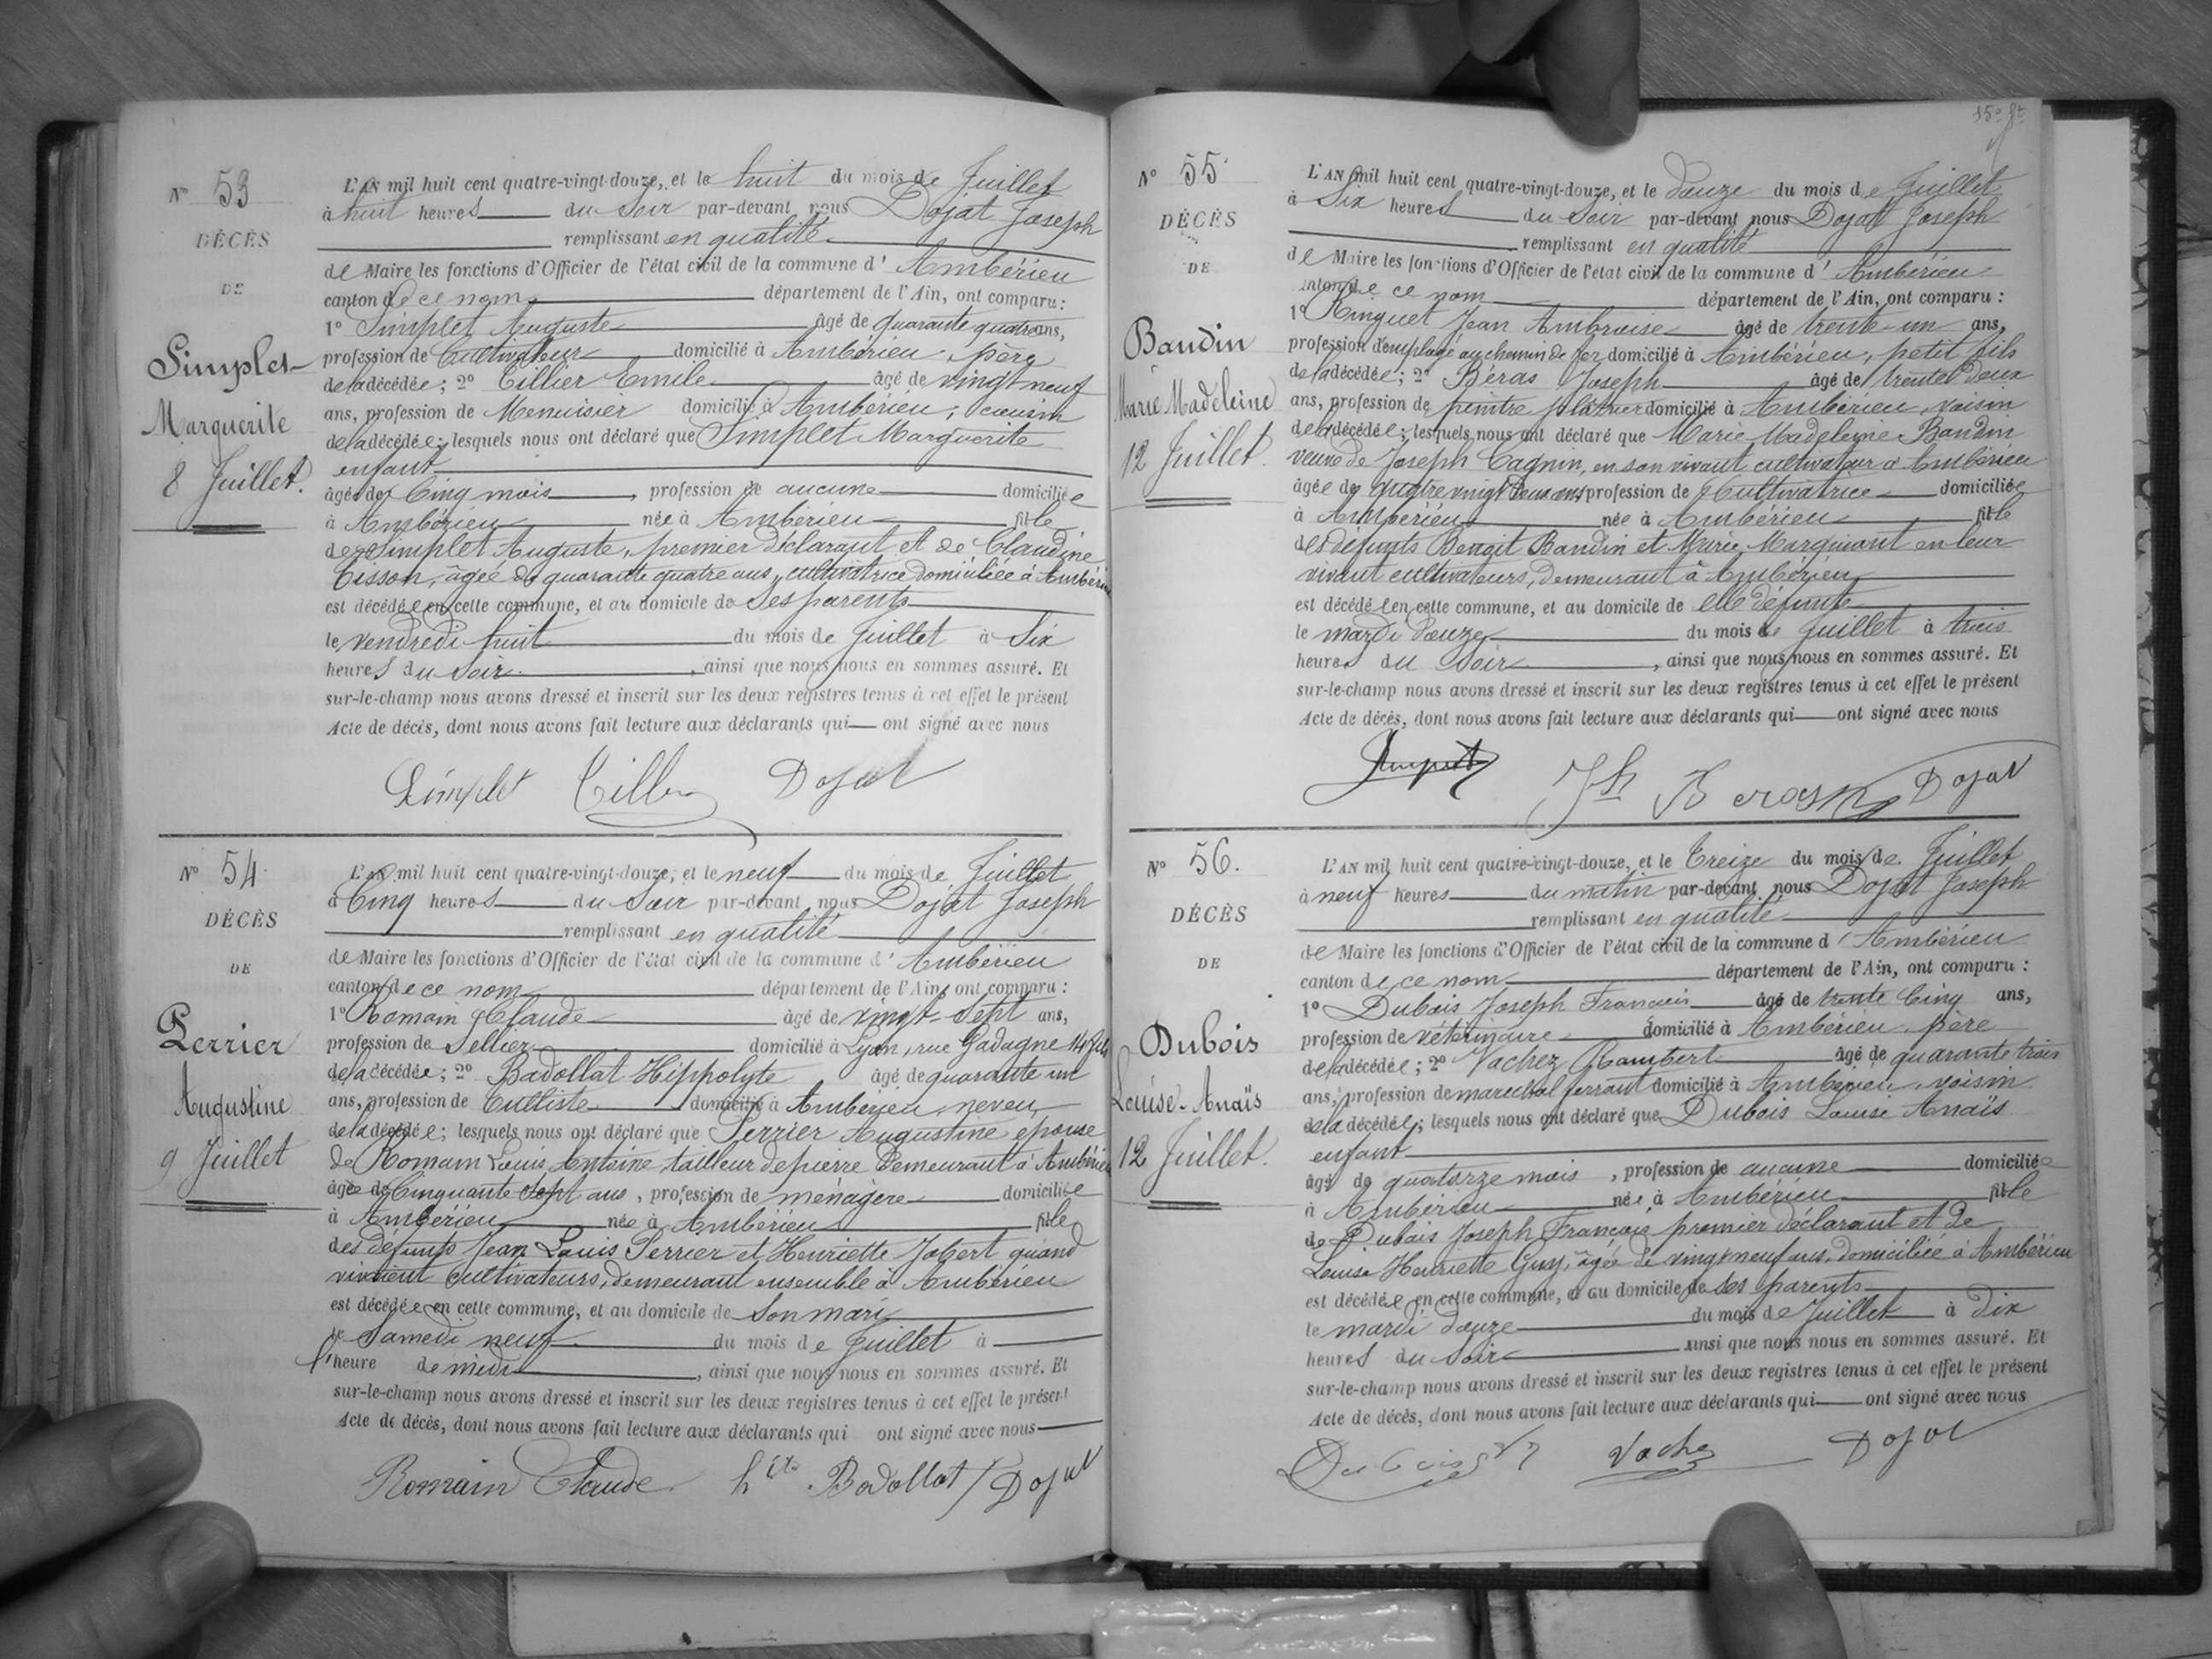 N° 53
DÉCÈS
DE
Simplet
Marguerite
8 Juillet.
L'AN mil huit cent quatre-vingt-douze, et le huit du mois de Juillet
à huit heures du Soir par-devant nous Dojat Joseph
remplissant en qualité
de Maire les fonctions d'Officier de l'état civil de la commune d' Ambérieu
canton de ce nom département de l'Ain, ont comparu :
1° Simplet Auguste âgé de quarante quatre ans,
profession de Cultivateur domicilié à Ambérieu, père
de la décédée ; 2° Tillier Emile âgé de vingt neuf
ans, profession de Menuisier domicilié à Ambérieu, cousin
de la décédée ; lesquels nous ont déclaré que Simplet Marguerite
enfant
âgée de Cinq mois, profession de aucune domiciliée
à Ambérieu née à Ambérieu fille
de Simplet Auguste, premier déclarant et de Claudine
Tisson, âgée de quarante quatre ans, cultivatrice domiciliée à Ambérieu
est décédée en cette commune, et au domicile de Ses parents
le vendredi huit du mois de Juillet à Six
heures du Soir, ainsi que nous nous en sommes assuré. Et
sur-le-champ nous avons dressé et inscrit sur les deux registres tenus à cet effet le présent
Acte de décès, dont nous avons fait lecture aux déclarants qui ont signé avec nous
Simplet Tillier Dojat
N° 54
DÉCÈS
DE
Perrier
Augustine
9 Juillet
L'AN mil huit cent quatre-vingt-douze, et le neuf du mois de Juillet
à Cinq heures du Soir par-devant nous Dojat Joseph
remplissant en qualité
de Maire les fonctions d'Officier de l'état civil de la commune d' Ambérieu
canton de ce nom département de l'Ain, ont comparu :
1° Romain Claude âgé de vingt-Sept ans,
profession de Sellier domicilié à Lyon, rue Gadagne 14 fils
de la décédée ; 2° Badollat Hippolyte âgé de quarante un
ans, profession de Cultiste domicilié à Ambérieu, neveu
de la décédée ; lesquels nous ont déclaré que Perrier Augustine épouse
de Romain Louis Antoine tailleur de pierre demeurant à Ambérieu
âgée de Cinquante Sept ans, profession de ménagère domiciliée
à Ambérieu née à Ambérieu fille
des défunts Jean Louis Perrier et Henriette Jobert quand
vivaient Cultivateurs, demeurant ensemble à Ambérieu
est décédée en cette commune, et au domicile de Son mari
le Samedi neuf du mois de Juillet à
l'heure de midi, ainsi que nous nous en sommes assuré. Et
sur-le-champ nous avons dressé et inscrit sur les deux registres tenus à cet effet le présent
Acte de décès, dont nous avons fait lecture aux déclarants qui ont signé avec nous
Romain Claude hte Badollat Dojat
N° 55
DÉCÈS
DE
Baudin
Marie Madeleine
12 Juillet.
L'AN mil huit cent quatre-vingt-douze, et le douze du mois de Juillet
à Six heures du Soir par-devant nous Dojat Joseph
remplissant en qualité
de Maire les fonctions d'Officier de l'état civil de la commune d' Ambérieu
canton de ce nom département de l'Ain, ont comparu :
1° Ringuet Jean Ambroise âgé de trente-un ans,
profession d'employé au chemin de fer domicilié à Ambérieu, petit fils
de la décédée ; 2° Béras Joseph âgé de trente deux
ans, profession de peintre plâtrier domicilié à Ambérieu, voisin
de la décédée ; lesquels nous ont déclaré que Marie Madeleine Baudin
veuve de Joseph Cagnin, en son vivant cultivateur à Ambérieu
âgée de quatre vingt deux ans profession de Cultivatrice domiciliée
à Ambérieu née à Ambérieu fille
des défunts Benoit Baudin et Marie Marguiront en leur
vivant cultivateurs, demeurant à Ambérieu
est décédée en cette commune, et au domicile de elle défunte
le mardi douze du mois de Juillet à trois
heures du Soir, ainsi que nous nous en sommes assuré. Et
sur-le-champ nous avons dressé et inscrit sur les deux registres tenus à cet effet le présent
Acte de décès, dont nous avons fait lecture aux déclarants qui ont signé avec nous
Jh Beras Dojat
N° 56.
DÉCÈS
DE
Dubois
Louise-Anaïs
12 Juillet.
L'AN mil huit cent quatre-vingt-douze, et le Treize du mois de Juillet
à neuf heures du matin par-devant nous Dojat Joseph
remplissant en qualité
de Maire les fonctions d'Officier de l'état civil de la commune d' Ambérieu
canton de ce nom département de l'Ain, ont comparu :
1° Dubois Joseph Francois âgé de trente Cinq ans,
profession de vétérinaire domicilié à Ambérieu père
de la décédée ; 2° Vachez Rambert âgé de quarante trois
ans, profession de marechal ferrant domicilié à Ambérieu, voisin
de la décédée ; lesquels nous ont déclaré que Dubois Louise Anaïs
enfant
âgé de quatorze mois, profession de aucune domiciliée
à Ambérieu née à Ambérieu fille
de Dubois Joseph Francois premier déclarant et de
Louise Henriette Guy, âgée de vingt neuf ans, domiciliée à Ambérieu
est décédée en cette commune, et au domicile de ses parents
le mardi douze du mois de Juillet à dix
heures du Soir ainsi que nous nous en sommes assuré. Et
sur-le-champ nous avons dressé et inscrit sur les deux registres tenus à cet effet le présent
Acte de décès, dont nous avons fait lecture aux déclarants qui ont signé avec nous
Dubois Vachez Dojat